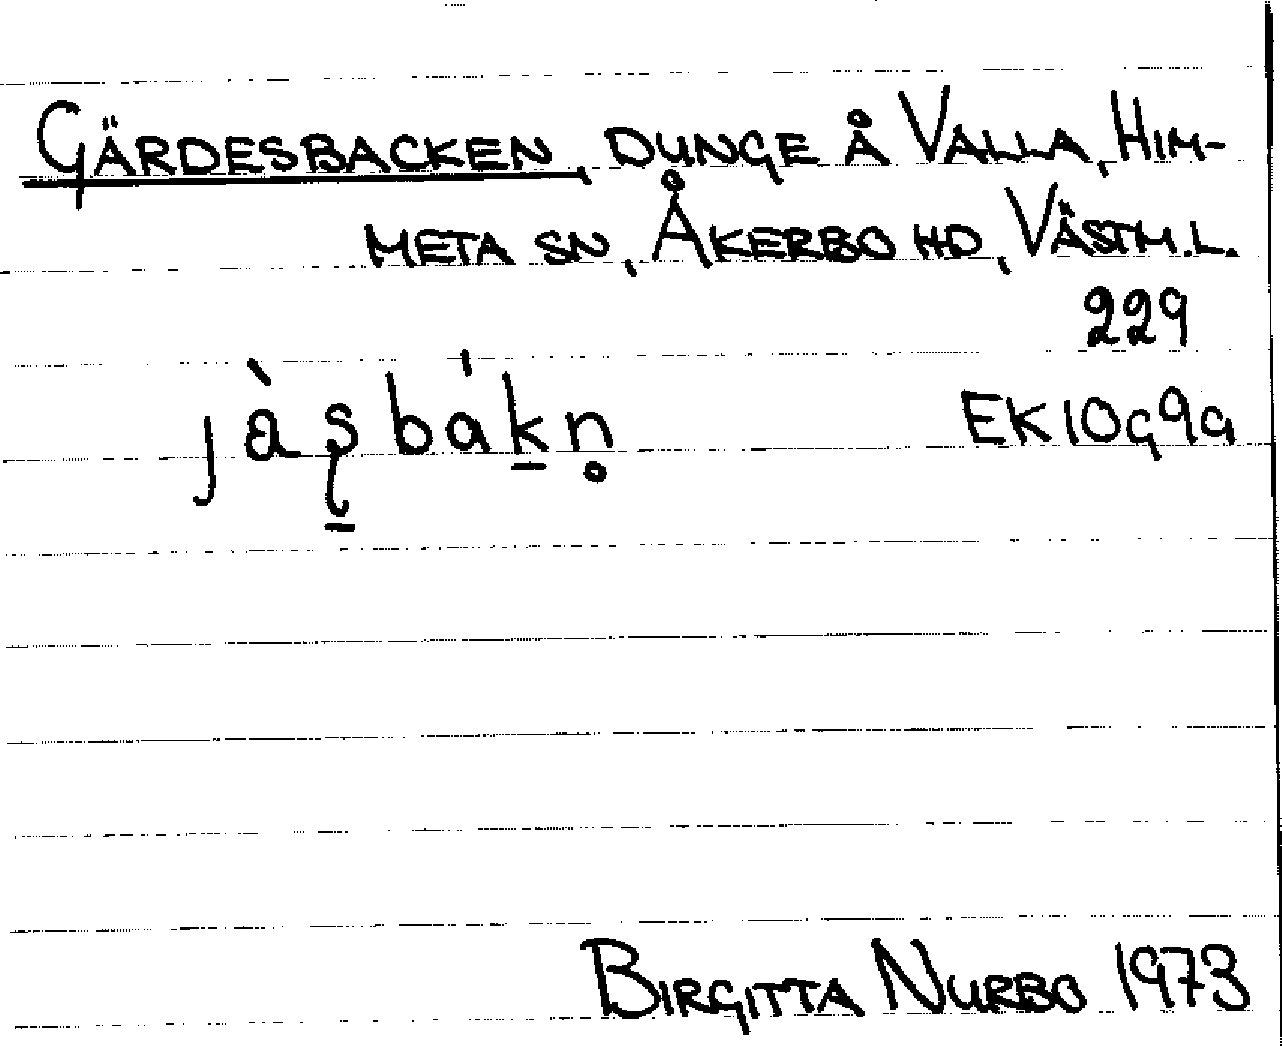 GÄRDESBACKEN, DUNGE Å VALLA, HIM-
META SN, ÅKERBO HD, VÄSTM.L.
229
jàs̠bák̠n̥
EK10g9a
BIRGITTA NURBO 1973